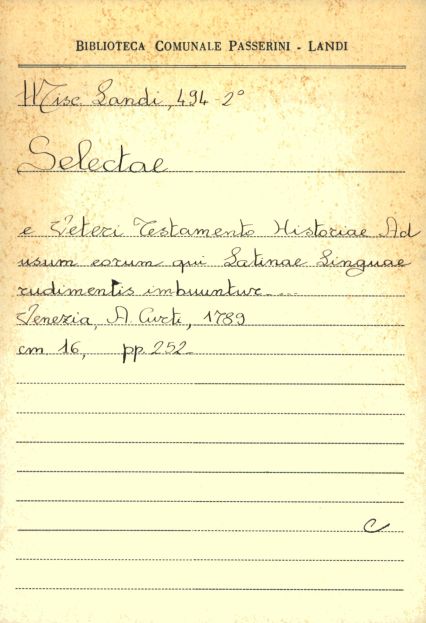 BIBLIOTECA COMUNALE PASSERINI - LANDI
Misc. Landi, 494 2°
Selectae
e Veteri Testamento Historiae Ad
usum eorum qui Latinae Linguae
rudimentis imbuuntur....
Venezia, A. Curti, 1789
cm 16, pp. 252.
C